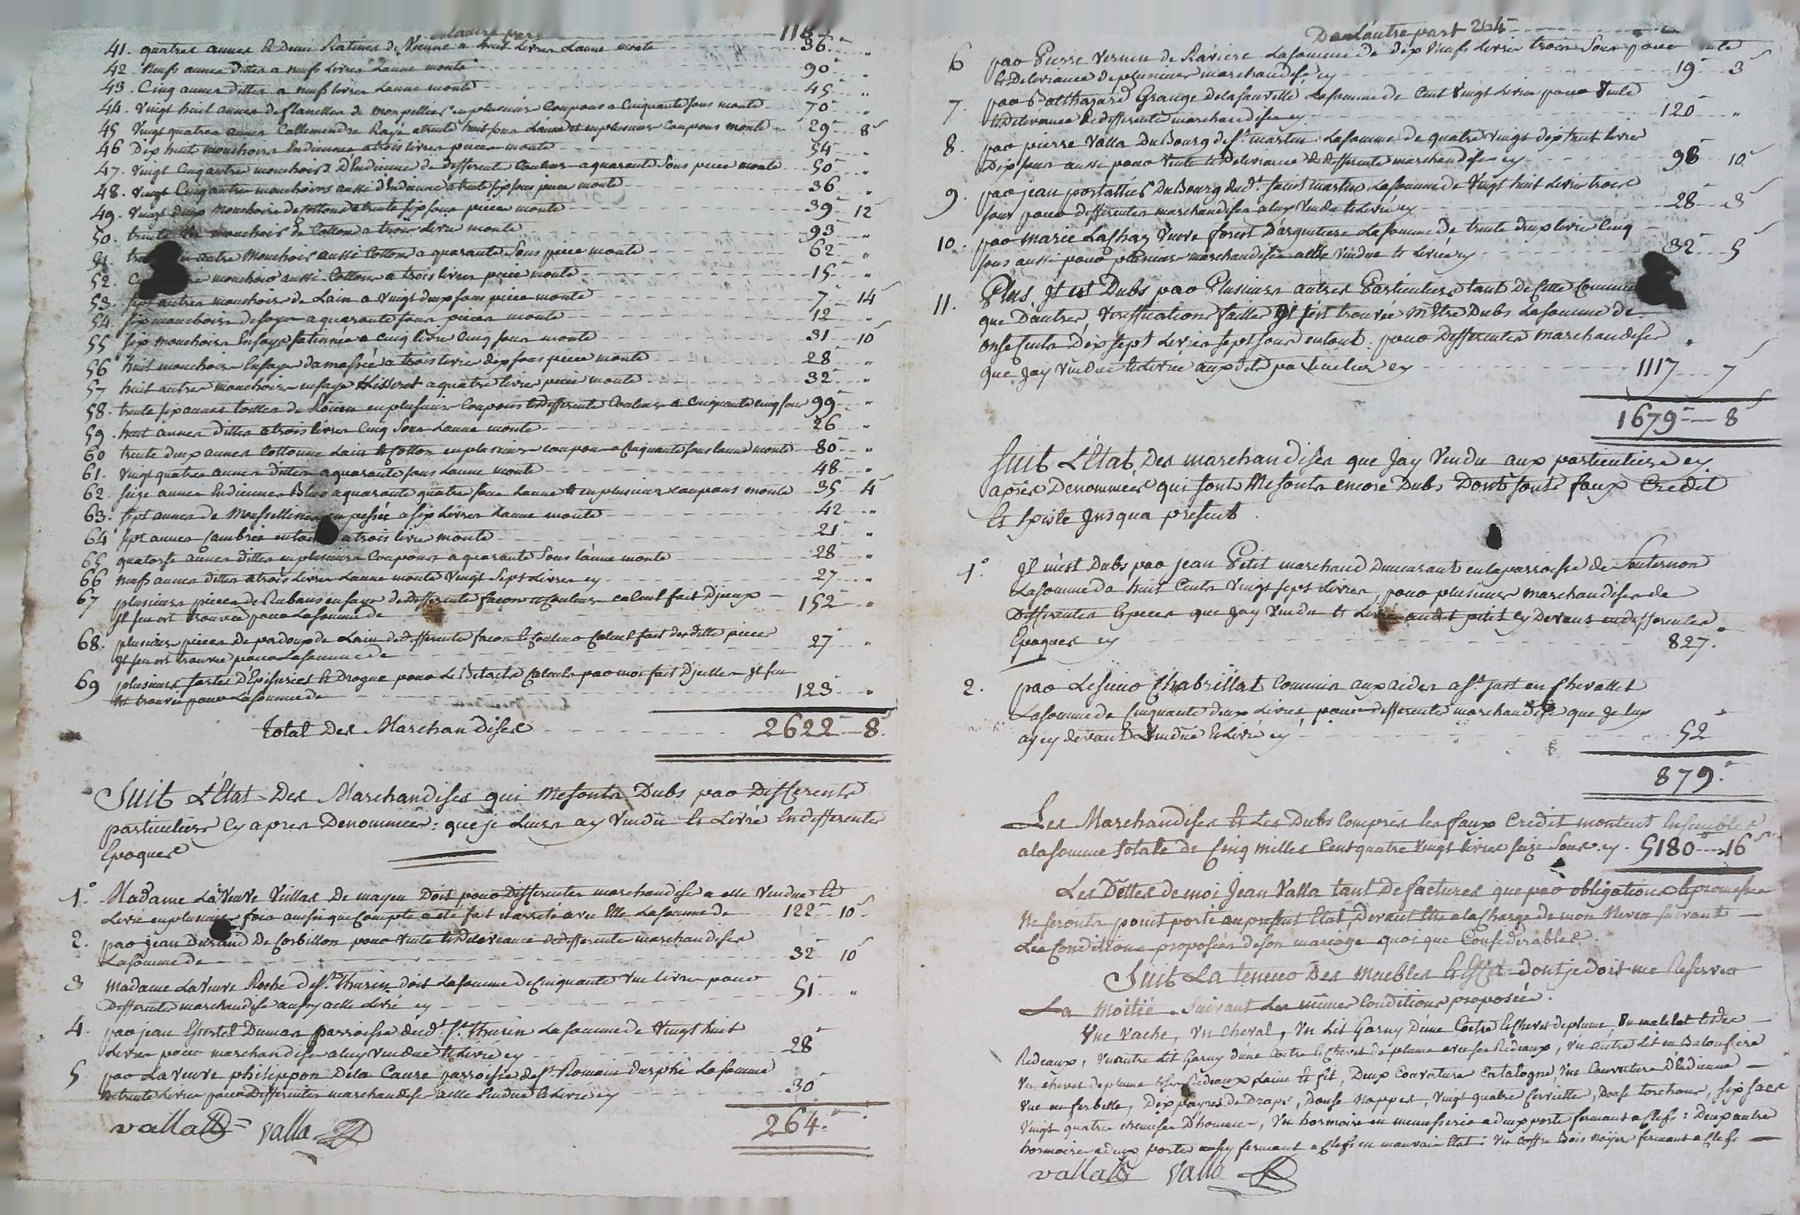 41. quatres aunes & Demi Ratines de Vienne a huit Livres Laune monte 36 "
42 Neufs aunes dittes a neufs Livres Laune monte 90 "
43. Cinq aunes dittes a neufs livres Laune monte 45 "
44. Vingt huit aunes de flanelles de monpellier en plusieurs Coupons a Cinquante sous monte 70 "
45 Vingt quatres aunes Callemendre Raye a trente huit sous Laune et en plusieurs Coupons monte 29 8s
46 Dix huit mouchoirs Indienne a trois livres piece monte 54 "
47. Vingt Cinq autres mouchoirs D'Indienne de different Couleurs a quarente Sous piece monte 50 "
48. Vingt Cinq autres mouchoirs aussi d'Indienne a trente six sous piece monte 36 "
49. Vingt Deux Mouchoirs de Cottond a trente six sous piece monte 39 12
50. trente mouchoirs de Cotton a trois Livre monte 93 "
51 autre Mouchoirs aussi Cotton a quarente Sous piece monte 62 "
52. mouchoirs aussi Cotton a trois livres piece monte 15 "
53. Sept autres mouchoirs de Lain a Vingt deux sous piece monte 7 14
54 Six mouchoirs de soye a quarente sous piece monte 12 "
55 Six mouchoirs En soye satinnée a Cinq Livre Cinq sous monte 31 10
56 huit mouchoirs En soye damassée a trois livre dix sous piece monte 28 "
57 huit autres mouchoirs en soye a quatre livre piece monte 32 "
58. trente six aunes toilles de Rouen en plusieurs Coupons & differente Couleurs a Cinquante cinq sous 99 "
59. huit aunes dittes a trois livres Cinq Sous Laune monte 26 "
60 trente deux aunes Cottonne Lain & Cotton en plusieurs coupons a Cinquante sous Laune monte 80 "
61. Vingt quatres aunes dittes a quarante sous Laune monte 48 "
62. Seize aunes Indiennes Bleu a quarante quatre sous Laune & en plusieurs coupons monte 35 4
63. Sept aunes de Mousselline a six Livres Laune monte 42 "
64 Sept aunes a trois livre monte 21 "
65 quatorse aunes dittes en plusieurs Coupons a quarante Sous Laune monte 28 "
66 neufs aunes dittes a trois Livres Laune monte Vingt Sept Livres cy 27 "
67 plusieurs pieces de Rubans en soye de differente façon & Couleur calcul fait D'jceux
Il sen est trouvée pour La somme de 152 "
68. plusieurs pieces de padoux de Lain de differente facon & Couleur Calcul fait des ditte pieces
Il sen est trouvée pour La somme de 27 "
69 plusieurs sortes D'Epiceries & Drogue pour Le Détail Calcule par moi fait D'jcelles Il sen
est trouvée pour La somme de 123 "
Total Des Marchandises 2622 8s
Suit L'État Des Marchandises qui me sonts Dubs par Differents
particuliers Cy apres Denommées: que je Leurs ay Vendû & Livré En differentes
Epoques
1.° Madame La Veuve Veillas De mayen Doit pour Differentes marchandises a elle Vendue &
Livré en plusieurs fois ainsi que Compte a été fait et arreté avec Elle La somme de 122 10s
2. par jean Durand De Corbillon pour Vente & Delivrance de differente marchandises
La somme de 32 10s
3 Madame La Veuve Roche de St. Thurin doit La somme de Cinquante Une livres pour
Differente marchandises aussy a elle Livré cy 51 "
4. par jean Dumas parroisse dudt. St. Thurin La somme de Vingt huit
Livres pour marchandises a luy Vendue & Livré cy 28
5 par La Veuve philippon De la Cause parroisse de St. Romain durphé La somme
de trente Livres pour Differentes marchandises a elle Vendue & Livré cy 30
264.
vallat valla
De L'autre part 264
6 par Pierre Verniu de Raviere La somme de dix Neufs Livres trois Sous pour Vente
& Delivrance de plusieurs marchandises cy 19 3s
7. par Balthazard Grange de La somme de Cent Vingt Livres pour Vente
& Delivrance de differente marchandises cy 120 "
8. par pierre Valla Du Bourg de St. martin La somme de quatre Vingt dix huit Livre
Dix sous aussi pour Vente & Delivrance de differente marchandises cy 98 10s
9. par jean Du Bourg dudt. saint Martin La somme de Vingt huit Livres trois
sous pour differentes marchandises a luy Vendu & Livré cy 28 3s
10. par Marie Lashay Veuve forest D'arguliere La somme de trente deux livre Cinq
sous aussi pour plusieurs marchandises a elle Vendue & Livrée cy 32 5
11. Plus, Il est Dubs par Plusieurs autres Particuliers tant De Cette Commune
que Dautres Veriffication faitte Il sest trouvée M'Etre Dubs La somme de
onse Cents Dix sept Livres sept sous en tout. pour Differentes Marchandises
que Jay Vendue & Livrée aux dits particuliers cy 1117 7s
1679 8s
Suit L'État, Des marchandises que Jay Vendu aux particuliers cy
apres Denommées qui sont & me sonts encore Dubs Dont sont faux Credit
Et Existe Jusqua present.
1.° Il mest Dubs par jean Petit marchand Demeurant en la parroisse de Souternon
La somme de huit Cents Vingt sept Livres, pour plusieurs marchandises de
Differentes Especes que Jay Vendu & Livré audit petit Cy Devant en differentes
Epoques cy 827.
2. par Le sieur Chabrillat Commis aux aides a St. just en Chevallet
La somme de Cinquante deux Livres pour differente marchandises que Je luy
ay cy devant Vendue & Livré cy 52
879.
Les Marchandises & Les Dubs Compris les faux Credit montent Ensemble
a la somme totale de Cinq milles Cent quatre Vingt livres seize Sous. cy. 5180 16s
Les Dettes de moi Jean Valla tant De factures que par obligations & promesses
Ne seronts point porté au present Etat, Devant Etre a la Charge de mon Neveu suivant
Les Conditions proposées de son mariage quoique Considerables.
Suit La teneur Des meubles & Effet dont je doit me Reserver
La Moitiée. Suivant Les même Conditions proposée.
Une Vache, Un Cheval, Un Lit Garny D'une Coëtre & Chevet de plume, Un matelat & des
Rideaux, Un autre Lit Garny d'une Coëtre & Chevet de plume avec ses Rideaux, Un autre Lit en Balouffiere
Un chevet de plume & ses Rideaux Laine & fil, Deux Couverture Catalogne, Une Couverture d'Indienne
Dix payres de Draps, Douse Nappes, Vingt quatre Serviette, Douse torchons, six sacs
Vingt quatre chemises D'homme, Un hormoire en menuiserie a deux porte fermant a clefs: Deux autre
hormoires a deux portes aussy fermant a Clefs en mauvais Etat: Un Coffre Bois Noyer fermant a Clefs
vallat valla